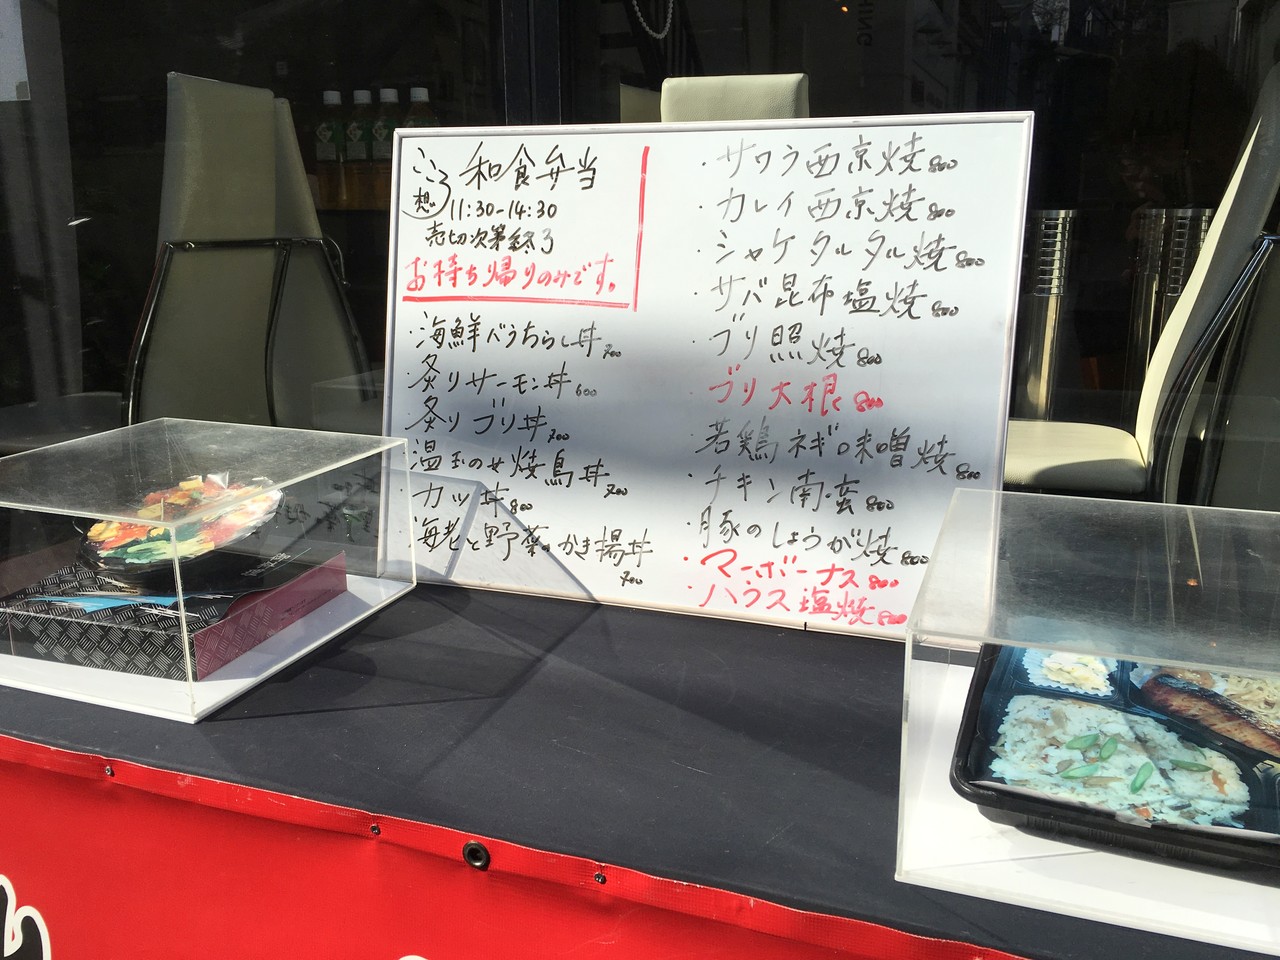 こころ 和食弁当
想
11:30-14:30
売切次第終了
お持ち帰りのみです。
・海鮮バラちらし丼 700
・炙りサーモン丼 600
・炙りブリ丼 700
・温玉のせ焼鳥丼 700
・カツ丼 800
・海老と野菜のかき揚丼 700
・サワラ西京焼 800
・カレイ西京焼 800
・シャケタルタル焼 800
・サバ昆布塩焼 800
・ブリ照焼 800
・ブリ大根 800
・若鶏ネギ味噌焼 800
・チキン南蛮 800
・豚のしょうが焼 800
・マーボーナス 800
・ハラス塩焼 800